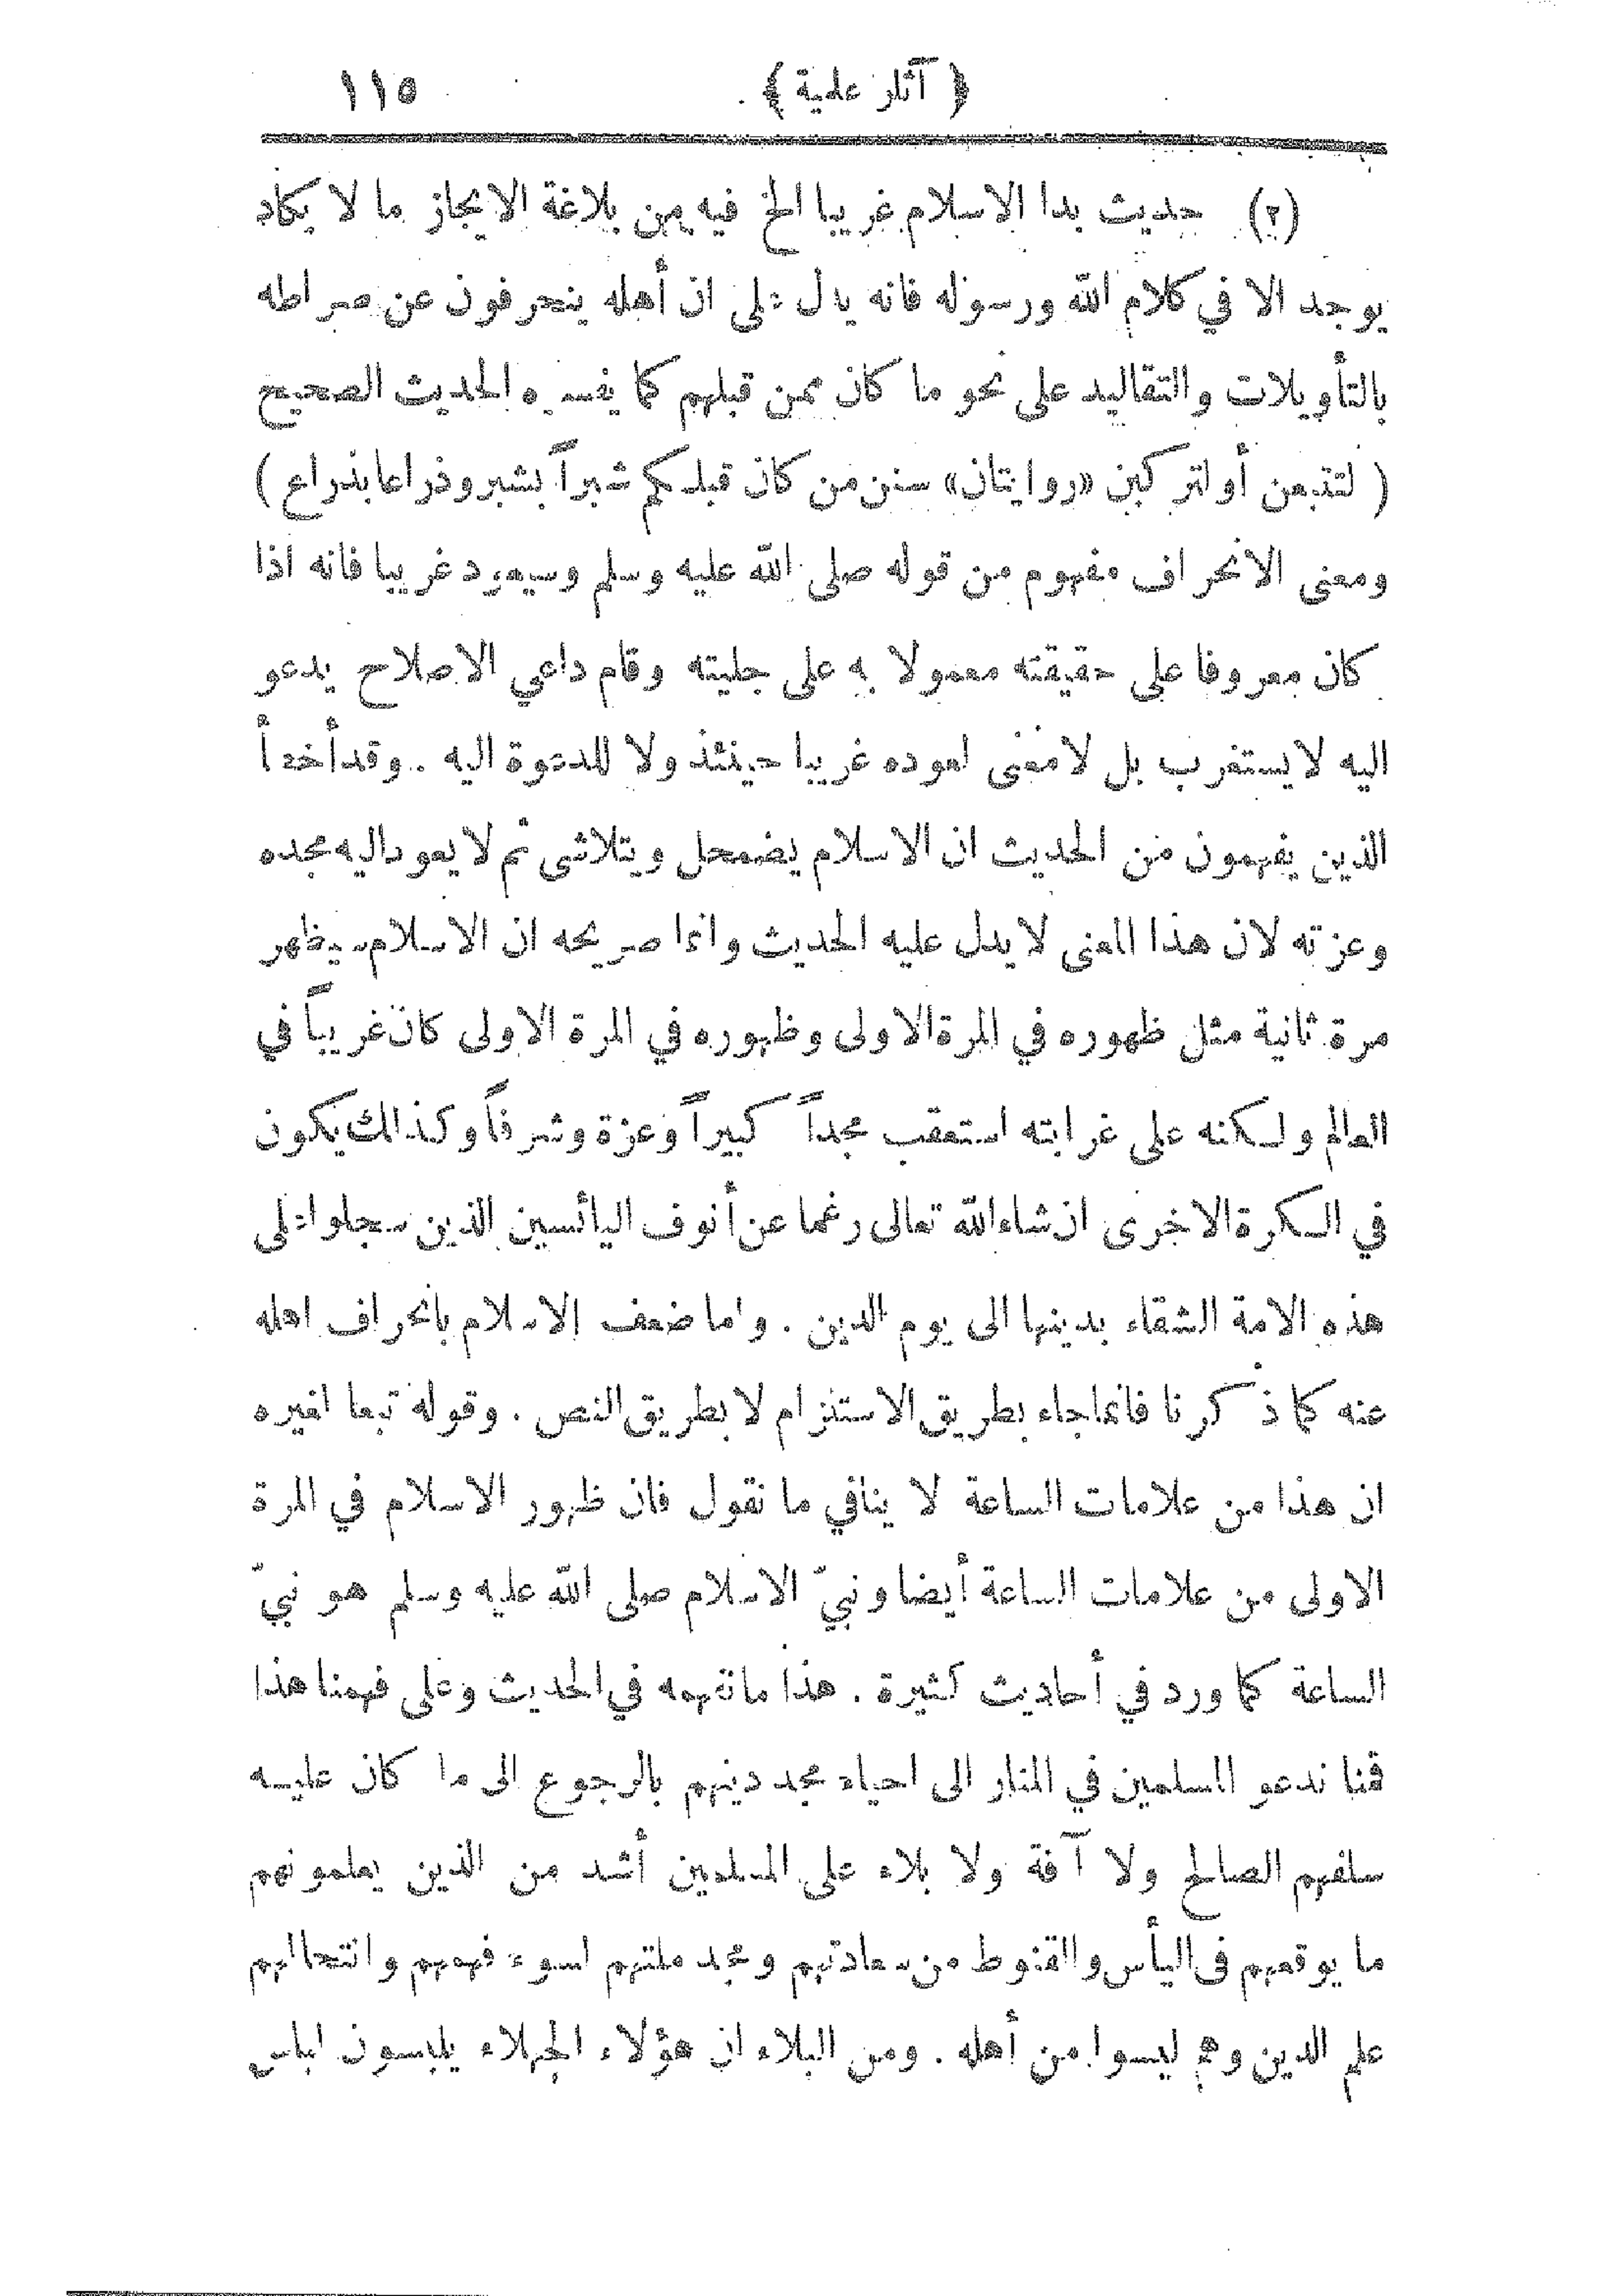 ﴿ آثار علمية ﴾ ١١٥
(٢) حديث بدا الاسلام غريبا الخ فيه من بلاغة الايجاز ما لا يكاد
يوجد الا في كلام الله ورسوله فانه يدل على ان أهله ينحرفون عن صراطه
بالتأويلات والتقاليد على نحو ما كان ممن قبلهم كما يفسره الحديث الصحيح
( لتتبعن أو لتركبن «روايتان» سنن من كان قبلكم شبراً بشبر وذراعا بذراع )
ومعنى الانحراف مفهوم من قوله صلى الله عليه وسلم وسيعود غريبا فانه اذا
كان معروفا على حقيقته معمولا به على جليته وقام داعي الاصلاح يدعو
اليه لا يستغرب بل لا معنى لعوده غريبا حينئذ ولا للدعوة اليه . وقد أخطأ
الذين يفهمون من الحديث ان الاسلام يضمحل ويتلاشى ثم لا يعود اليه مجده
وعزته لان هذا المعنى لا يدل عليه الحديث وانما صريحه ان الاسلام سيظهر
مرة ثانية مثل ظهوره في المرة الاولى وظهوره في المرة الاولى كان غريباً في
العالم ولكنه على غرابته استعقب مجداً كبيراً وعزة وشرفاً وكذلك يكون
في الكرة الاخرى ان شاء الله تعالى رغما عن أنوف اليائسين الذين سجلوا على
هذه الامة الشقاء بدينها الى يوم الدين . واما ضعف الاسلام بانحراف اهله
عنه كما ذكرنا فانما جاء بطريق الاستلزام لا بطريق النص . وقوله تبعا لغيره
ان هذا من علامات الساعة لا ينافي ما نقول فان ظهور الاسلام في المرة
الاولى من علامات الساعة أيضا ونبيّ الاسلام صلى الله عليه وسلم هو نبيّ
الساعة كما ورد في أحاديث كثيرة . هذا ما نفهمه في الحديث وعلى فهمنا هذا
قمنا ندعو المسلمين في المنار الى احياء مجد دينهم بالرجوع الى ما كان عليه
سلفهم الصالح ولا آفة ولا بلاء على المسلمين أشد من الذين يعلمونهم
ما يوقعهم في اليأس والقنوط من سعادتهم ومجد ملتهم لسوء فهمهم وانتحالهم
علم الدين وهم ليسوا من أهله . ومن البلاء ان هؤلاء الجهلاء يلبسون لباس